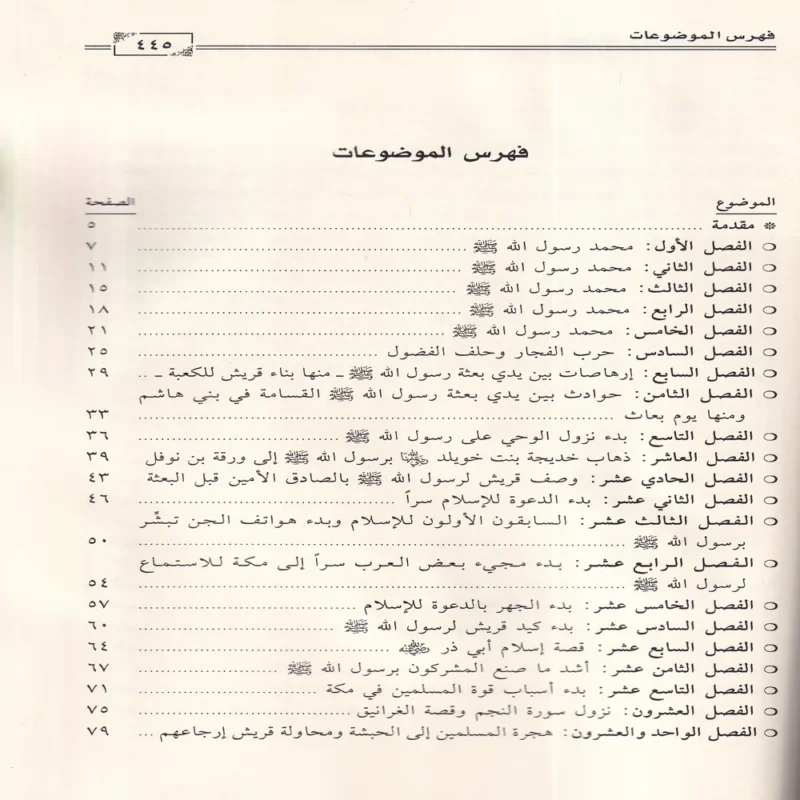 فهرس الموضوعات
٤٤٥
فهرس الموضوعات
الموضوع الصفحة
* مقدمة ............ ٥
○ الفصل الأول: محمد رسول الله ﷺ ............ ٧
○ الفصل الثاني: محمد رسول الله ﷺ ............ ١١
○ الفصل الثالث: محمد رسول الله ﷺ ............ ١٥
○ الفصل الرابع: محمد رسول الله ﷺ ............ ١٨
○ الفصل الخامس: محمد رسول الله ﷺ ............ ٢١
○ الفصل السادس: حرب الفجار وحلف الفضول ............ ٢٥
○ الفصل السابع: إرهاصات بين يدي بعثة رسول الله ﷺ ـ منها بناء قريش للكعبة ـ .. ٢٩
○ الفصل الثامن: حوادث بين يدي بعثة رسول الله ﷺ القسامة في بني هاشم
ومنها يوم بعاث ............ ٣٣
○ الفصل التاسع: بدء نزول الوحي على رسول الله ﷺ ............ ٣٦
○ الفصل العاشر: ذهاب خديجة بنت خويلد رضي الله عنها برسول الله ﷺ إلى ورقة بن نوفل ٣٩
○ الفصل الحادي عشر: وصف قريش لرسول الله ﷺ بالصادق الأمين قبل البعثة ٤٣
○ الفصل الثاني عشر: بدء الدعوة للإسلام سراً ............ ٤٦
○ الفصل الثالث عشر: السابقون الأولون للإسلام وبدء هواتف الجن تبشّر
برسول الله ﷺ ............ ٥٠
○ الفصل الرابع عشر: بدء مجيء بعض العرب سراً إلى مكة للاستماع
لرسول الله ﷺ ............ ٥٤
○ الفصل الخامس عشر: بدء الجهر بالدعوة للإسلام ............ ٥٧
○ الفصل السادس عشر: بدء كيد قريش لرسول الله ﷺ ............ ٦٠
○ الفصل السابع عشر: قصة إسلام أبي ذر رضي الله عنه ............ ٦٤
○ الفصل الثامن عشر: أشد ما صنع المشركون برسول الله ﷺ ............ ٦٧
○ الفصل التاسع عشر: بدء أسباب قوة المسلمين في مكة ............ ٧١
○ الفصل العشرون: نزول سورة النجم وقصة الغرانيق ............ ٧٥
○ الفصل الواحد والعشرون: هجرة المسلمين إلى الحبشة ومحاولة قريش إرجاعهم ... ٧٩